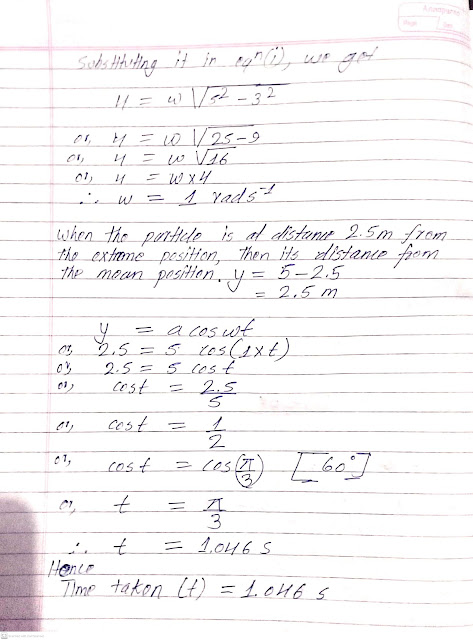 Page
Substituting it in eqn(i), we get
4 = w √5² - 3²
or, 4 = w √25-9
or, 4 = w √16
or, 4 = w x 4
∴ w = 1 rads⁻¹
when the particle is at distance 2.5m from
the extreme position, then its distance from
the mean position. y = 5-2.5
= 2.5 m
y = a cos wt
or, 2.5 = 5 cos(1xt)
or, 2.5 = 5 cos t
or, cost = 2.5/5
or, cost = 1/2
or, cost = cos(π/3) [60°]
or, t = π/3
∴ t = 1.046 s
Hence
Time taken (t) = 1.046 s